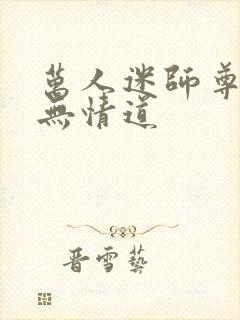 萬人迷師尊
無情道
晋雪藝